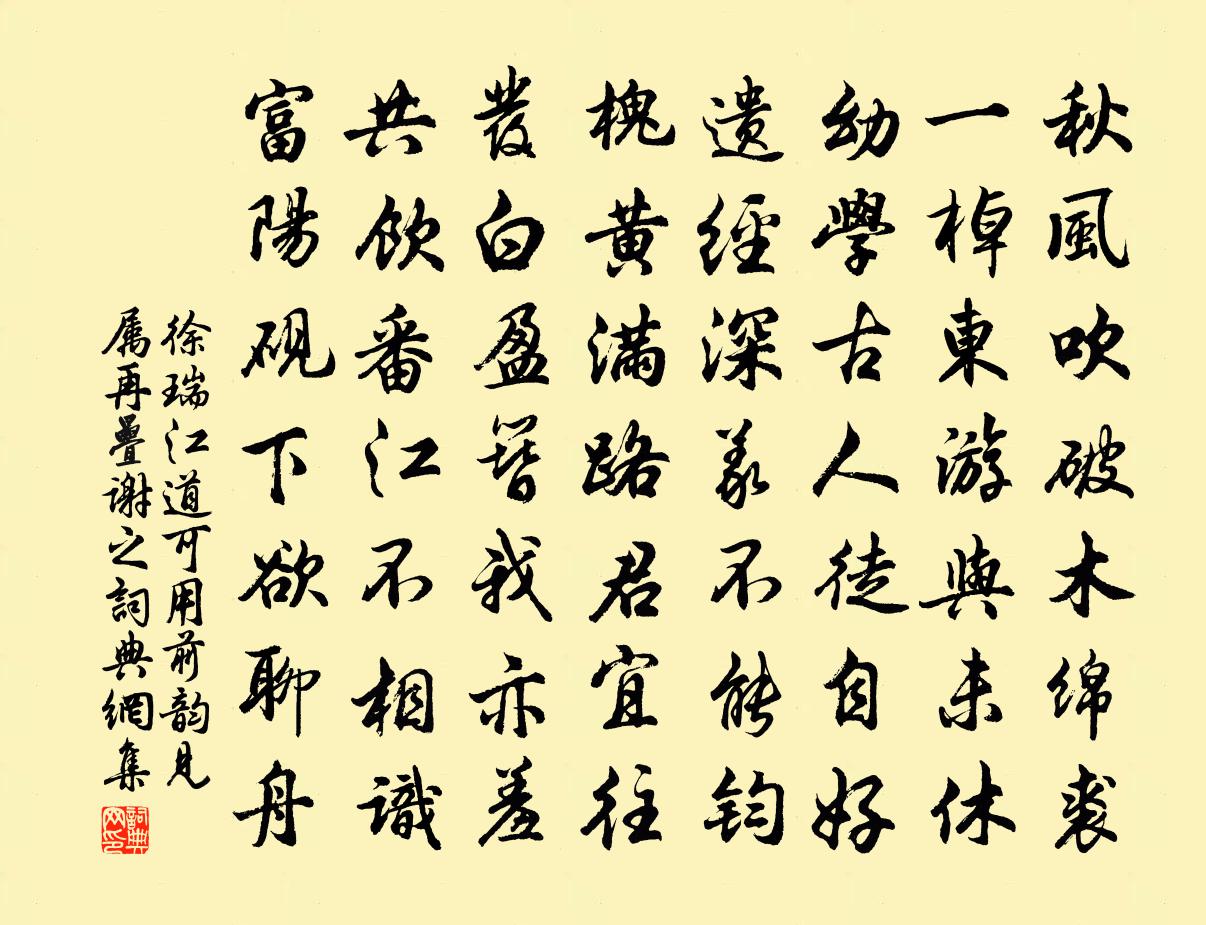 秋風吹破木綿裘
一棹東游興未休
幼學古人徒自好
遺經深義不能鈎
槐黄滿路君宜往
髮白盈簪我亦羞
共飲番江不相識
富陽硯下欲聊舟
徐瑞江道可用前韵見
属再疊謝之詞典網集
詞典